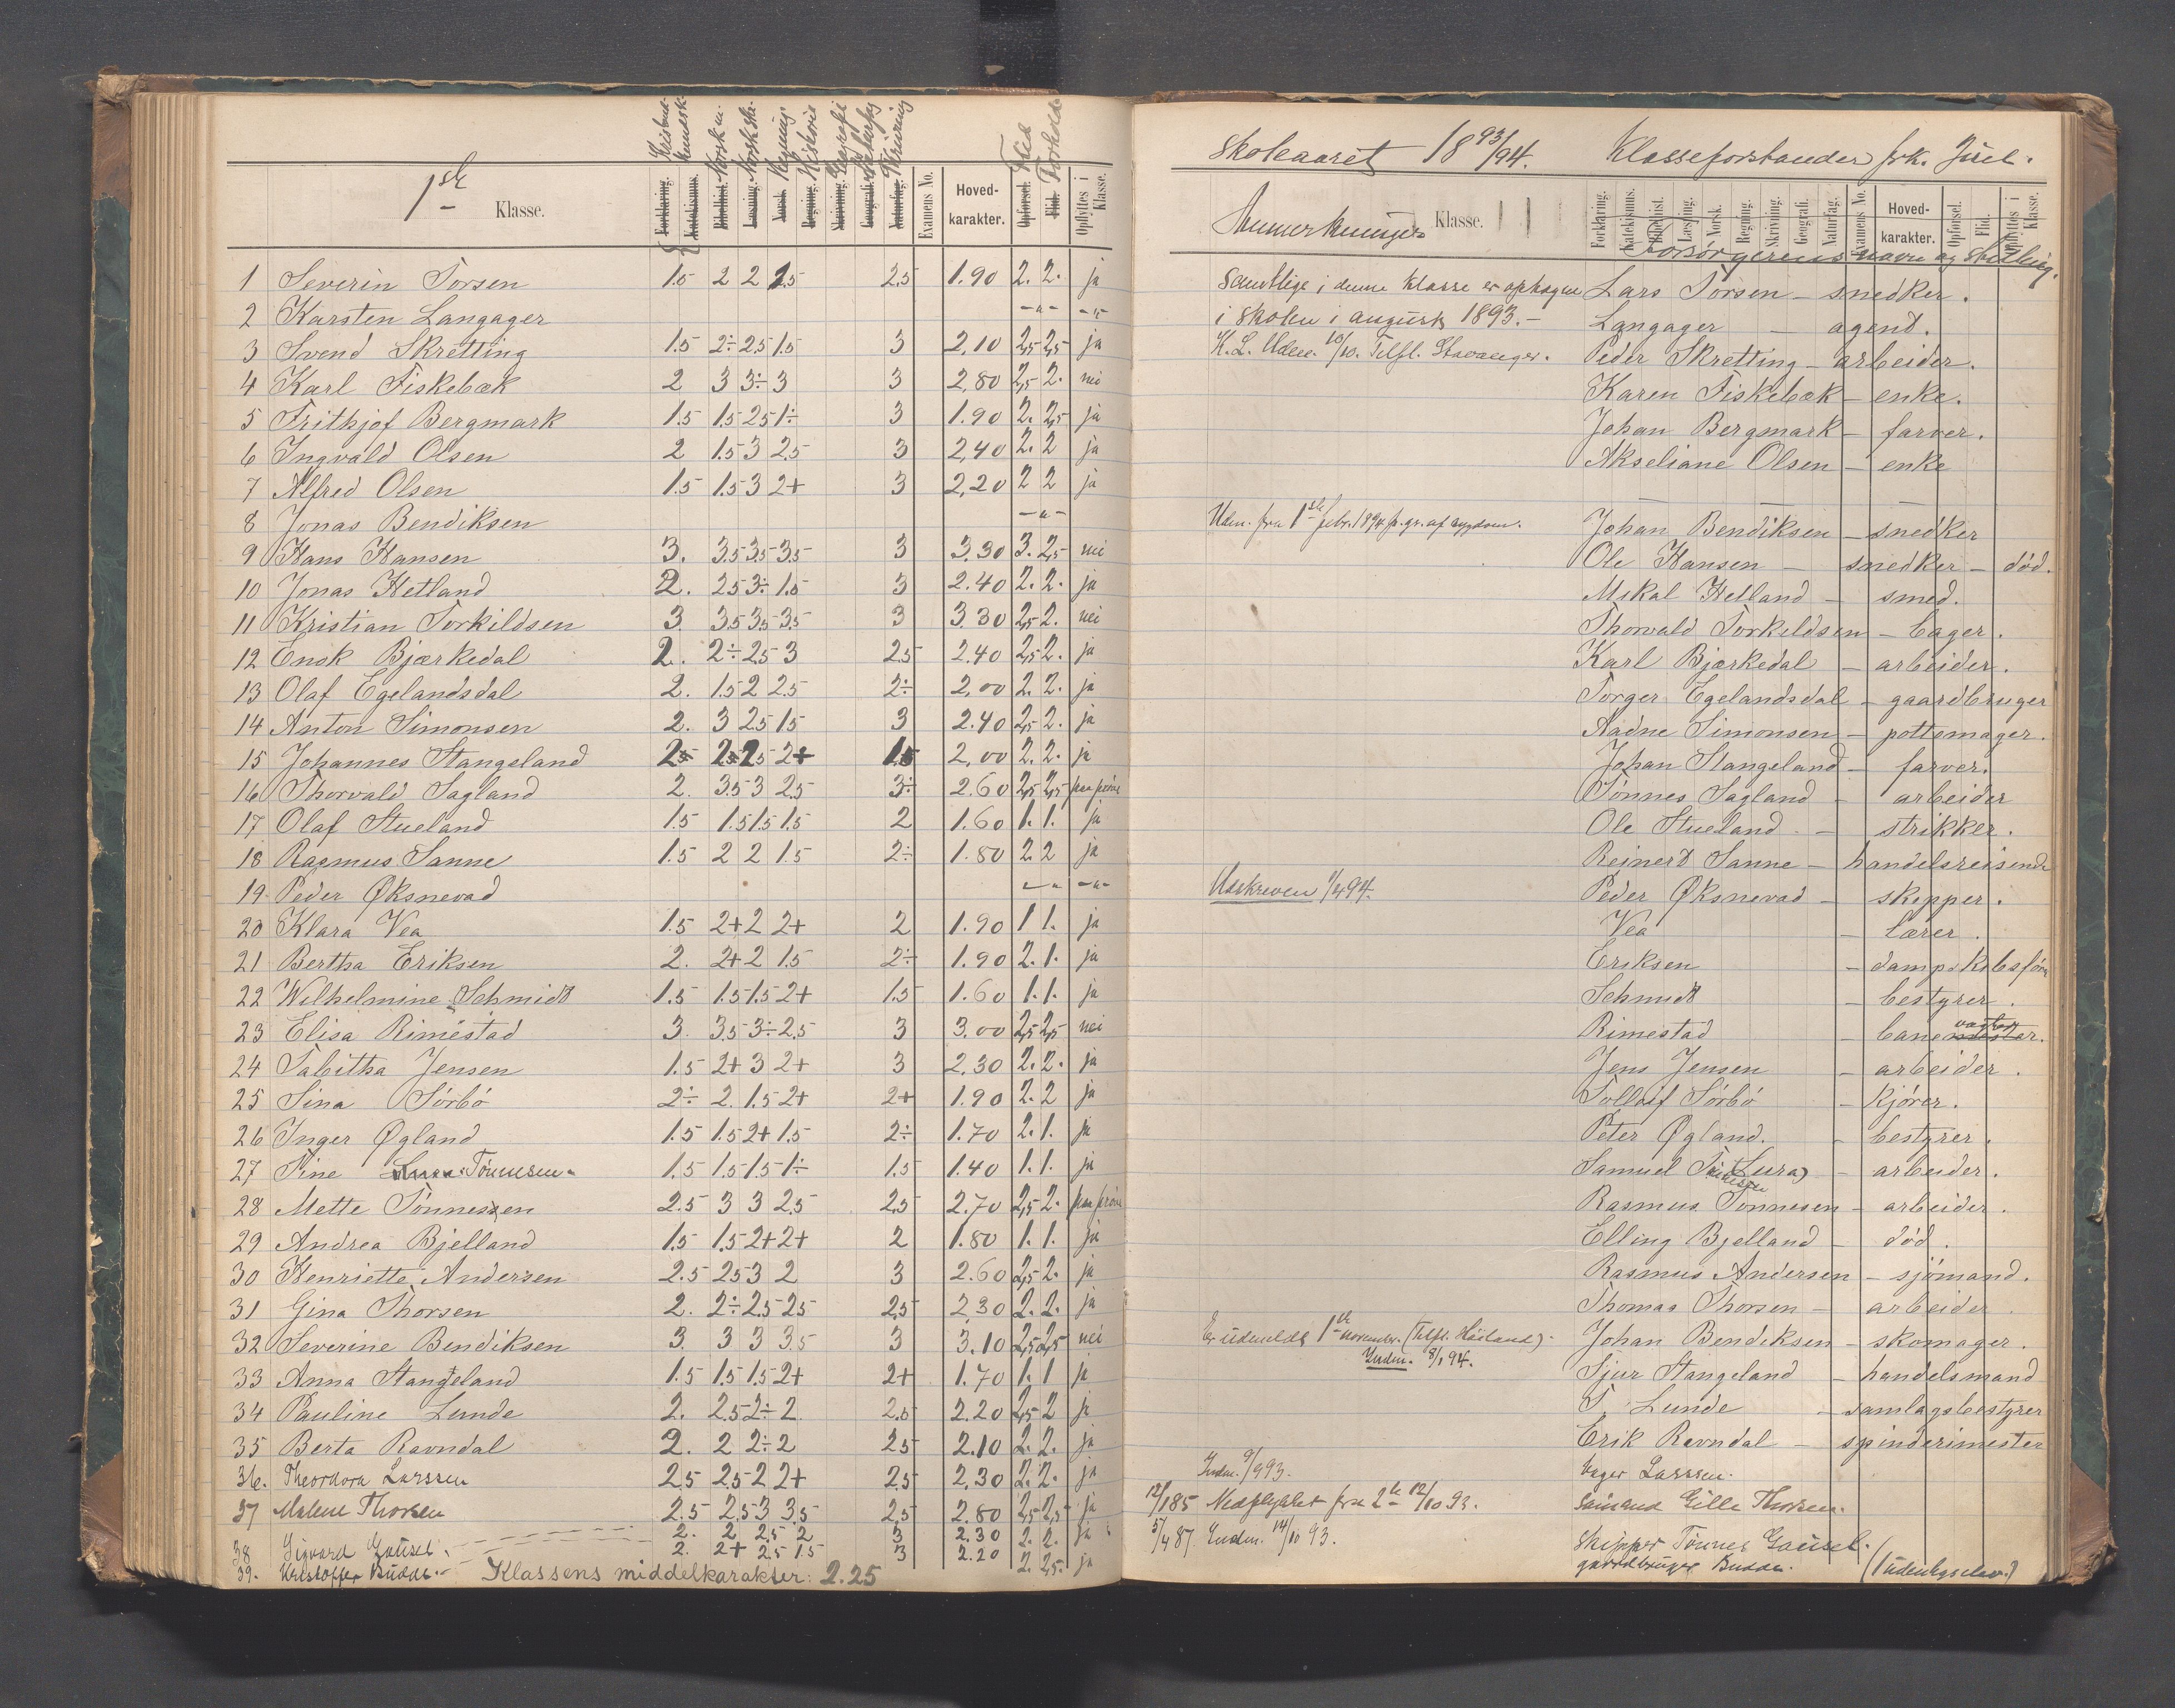 1ste Klasse.
Kristendomskundsk. Norsk m. Norsk skr. Regning Historie Geografi Naturfag Skrivning Flid Forhold
Forklaring. Katekismus. Bibelhist. Læsning. Norsk. Regning. Skrivning. Geografi. Naturfag. Examens No. Hoved-karakter. Opførsel. Flid. Opflyttes i Klasse.
1 Severin Torsen 1.5 2 2 2.5 2.5 1.90 2. 2. ja
2 Karsten Langager -"- -"-
3 Svend Skretting 1.5 2÷ 2.5 1.5 3 2,10 2,5 2,5 ja
4 Karl Fiskebæk 2 3 3÷ 3 3 2,80 2,5 2. nei
5 Frithjof Bergmark 1.5 1.5 2.5 1÷ 3 1.90 2. 2,5 ja
6 Ingvald Olsen 2 1.5 3 2.5 3 2,40 2. 2 ja
7 Alfred Olsen 1.5 1.5 3 2+ 3 2,20 2 2 ja
8 Jonas Bendiksen -"-
9 Hans Hansen 3. 3.5 3.5 3.5 3 3.30 3. 2,5 nei
10 Jonas Hetland 2. 2.5 3÷ 1.5 3 2.40 2. 2. ja
11 Kristian Torkildsen 3. 3.5 3.5 3.5 3 3.30 2,5 2. nei
12 Enok Bjærkedal 2. 2÷ 2.5 3 2.5 2.40 2,5 2. ja
13 Olaf Egelandsdal 2. 1.5 2 2.5 2÷ 2,00 2. 2. ja
14 Anton Simonsen 2. 3 2.5 1.5 3 2.40 2,5 2. ja
15 Johannes Stangeland 2+ 1.5 2,00 2. 2. ja
16 Thorvald Sagland 2. 3.5 3 2.5 3÷ 2.60 2,5 2,5 paa prøve
17 Olaf Stueland 1.5 1.5 1.5 1.5 2 1.60 1. 1. ja
18 Rasmus Sanne 1.5 2 2 1.5 2÷ 1.80 2 2 ja
19 Peder Øksnevad -"- -"-
20 Klara Vea 1.5 2+ 2 2+ 2 1.90 1 1. ja
21 Bertha Eriksen 2. 2+ 2 1.5 2÷ 1.90 2. 1. ja
22 Wilhelmine Schmidt 1.5 1.5 1.5 2+ 1.5 1.60 1. 1. ja
23 Elisa Rimestad 3. 3.5 3÷ 2.5 3 3.00 2,5 2,5 nei
24 Tabitha Jensen 1.5 2+ 3 2+ 3 2,30 2. 2. ja
25 Sina Sørbø 2÷ 2. 1.5 2+ 2+ 1.90 2. 2 ja
26 Inger Øgland 1.5 1.5 2+ 1.5 2÷ 1.70 2. 1. ja
27 Sine Tønnesen 1.5 1.5 1.5 1÷ 1.5 1.40 1. 1. ja
28 Mette Tønnesen 2.5 3 3 2.5 2.5 2.70 2,5 2. paa prøve
29 Andrea Bjelland 1.5 1.5 2+ 2+ 2 1.80 1. 1. ja
30 Henriette Andersen 2.5 2.5 3 2 3 2.60 2,5 2. ja
31 Gina Thorsen 2. 2÷ 2.5 2.5 2.5 2,30 2. 2. ja
32 Severine Bendiksen 3. 3 3 3.5 3 3.10 2,5 2,5 nei
33 Anna Stangeland 1.5 1.5 1.5 2+ 2+ 1.70 1. 1 ja
34 Pauline Lunde 2. 2.5 2÷ 2. 2.5 2.20 2,5 2 ja
35 Berta Ravndal 2. 2 2÷ 2 2.5 2.10 2. 2. ja
36. Theordora Larssen 2.5 2.5 2 2+ 2.5 2,30 2. 2. ja
37 Malene Thorsen 2.5 2.5 3 3.5 2.5 2.80 2,5 2,5 ja
38 Sigvard Gausel. 2. 2 2.5 2 3 2.30 2. 2. ja
39. Kristoffer Budde. 2. 2+ 2.5 1.5 3 2.20 2. 2.5. ja
Klassens middelkarakter: 2.25
Skoleaaret 1893/94. Klasseforstander frk. Juel.
Anmerkninger Klasse.
Forklaring. Katekismus. Bibelhist. Læsning. Norsk. Regning. Skrivning. Geografi. Naturfag. Examens No. Hoved-karakter. Opførsel. Flid. Opflyttes i Klasse.
Forsørgerens navn og stilling.
Samtlige i denne klasse er optagne Lars Torsen - snedker.
i skolen i august 1893.- Langager - agent.
K. L. Udm. 10/10. Tilfl. Stavanger. Peder Skretting - arbeider.
Karen Fiskebæk - enke.
Johan Bergmark - farver.
Akseliane Olsen - enke
Udm. fra 1ste febr. 1894 p. gr. af sygdom. Johan Bendiksen - snedker
Ole Hansen - snedker - død.
Mikal Hetland - smed.
Thorvald Torkildsen - bager.
Karl Bjærkedal - arbeider.
Torger Egelandsdal - gaardbruger
Aadne Simonsen - pottemager.
Johan Stangeland - farver.
Tønnes Sagland - arbeider
Ole Stueland - strikker.
Reinert Sanne - handelsreisende
Udskreven 1/4 94. Peder Øksnevad - skipper.
Vea - lærer.
Eriksen - dampskibsfører
Schmidt - bestyrer.
Rimestad - banemester. vogter
Jens Jensen - arbeider.
Tolleif Sørbø - kjører.
Peter Øgland. - bestyrer.
Samuel Tønnesen (Lura) - arbeider.
Rasmus Tønnesen - arbeider.
Elling Bjelland - død.
Rasmus Andersen - sjømand.
Thomas Thorsen - arbeider.
Er udmeldt 1ste november. (Tilfl. Høiland). Johan Bendiksen - skomager.
Indm. 8/1 94. Sjur Stangeland - handelsmand
T. Lunde - samlagsbestyrer
Erik Ravndal - spinderimester
Indm. 9/9 93. bager Larssen.
12/1 85 Nedflyttet fra 2de 12/10 93. sømand Gille Thorsen.
5/4 87. Indm. 14/10 93. skipper Tønnes Gausel.
gaardbruger Budde. (Udenbyselev.)